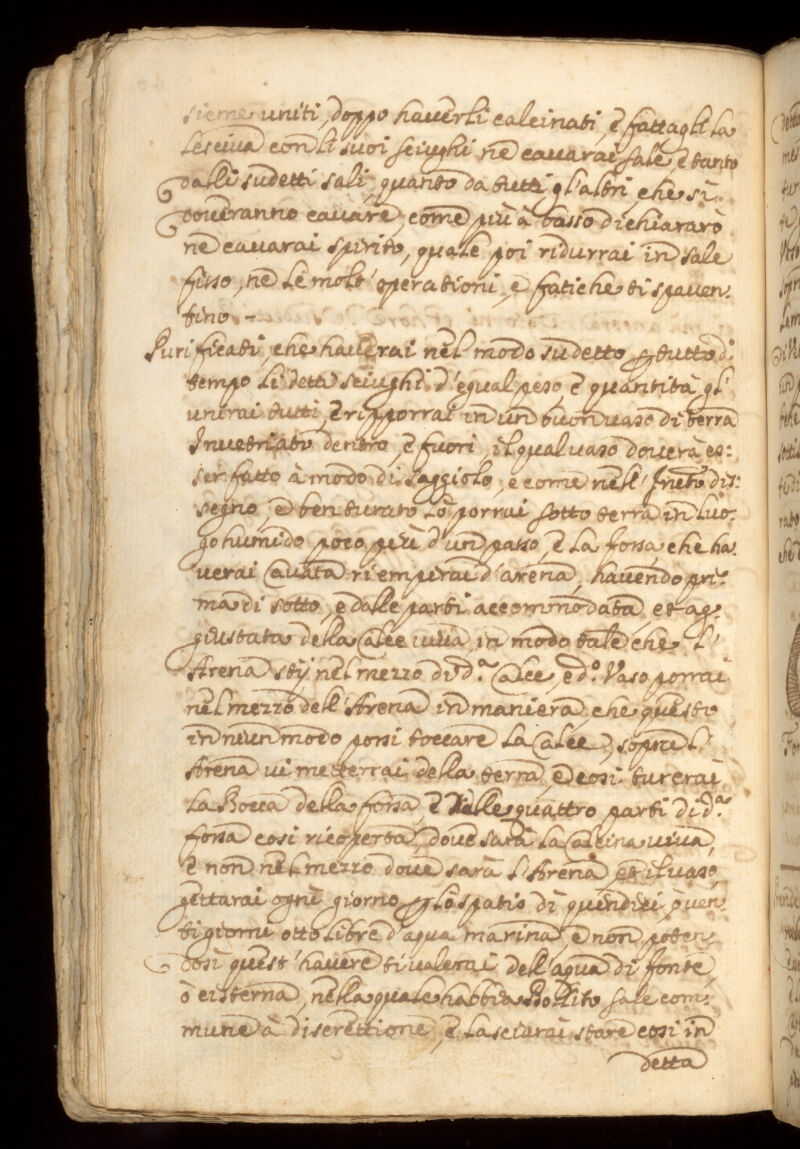 sieme uniti, doppo haverli calcinati, è fattagli la
lesciva con li suoi sciughi nè cavarai sale, è tanto
dalli sudetti sali, quanto da tutti gl'altri, che si
doveranno cavare, come più à basso dichiararò
nè cavarai spirito, quale poi ridurrai in sale
fisso, nè le molt'operationi, è fatiche ti spaven:
tino -
Purificati, che haverai nel modo sudetto tutto d:
tempo li detti sciughi d'egual peso, è quantità gl'
unirai tutti, è ripporrai in un buon vaso di terra
Invetriato dentro, è fuori, il qual vaso doverà es:
ser fatto à modo di saggiolo, è come nell' dis:
segno, è ben turato lò porrai sotto terra in luo:
go humido poco più d'un passo, è la fossa, che ha:
verai Cavata riempirai d'arena, havendo pri:
ma di sotto, è dalle parti accommodata, et ag:
giustata della Calce viva, in modo tale che l'
Arena stij nel mezzo di d.ª Calce, è d.º Vaso porrai
nel mezzo dell'Arena in maniera, che questo
in niun modo possi toccare la Calce, sopra l'
Arena vi metterrai della terra, è così turerai
la Bocca della fossa, è Nelle quattro parti di d.ª
fossa così ricoperta, dove sarà la Calcina viva,
è non nel mezzo dove sarà l'Arena, et il vaso,
gettarai ogni giorno lo spatio di quindici, ò ven:
ti giorni otto libre d'aqua marina, è non poten:
dosi quest'havere ti valerai dell'aqua di fonte,
ò cisterna, nella quale habbia Bollito sale com:
mune à discrettione, è lasciarai stare così in
detta